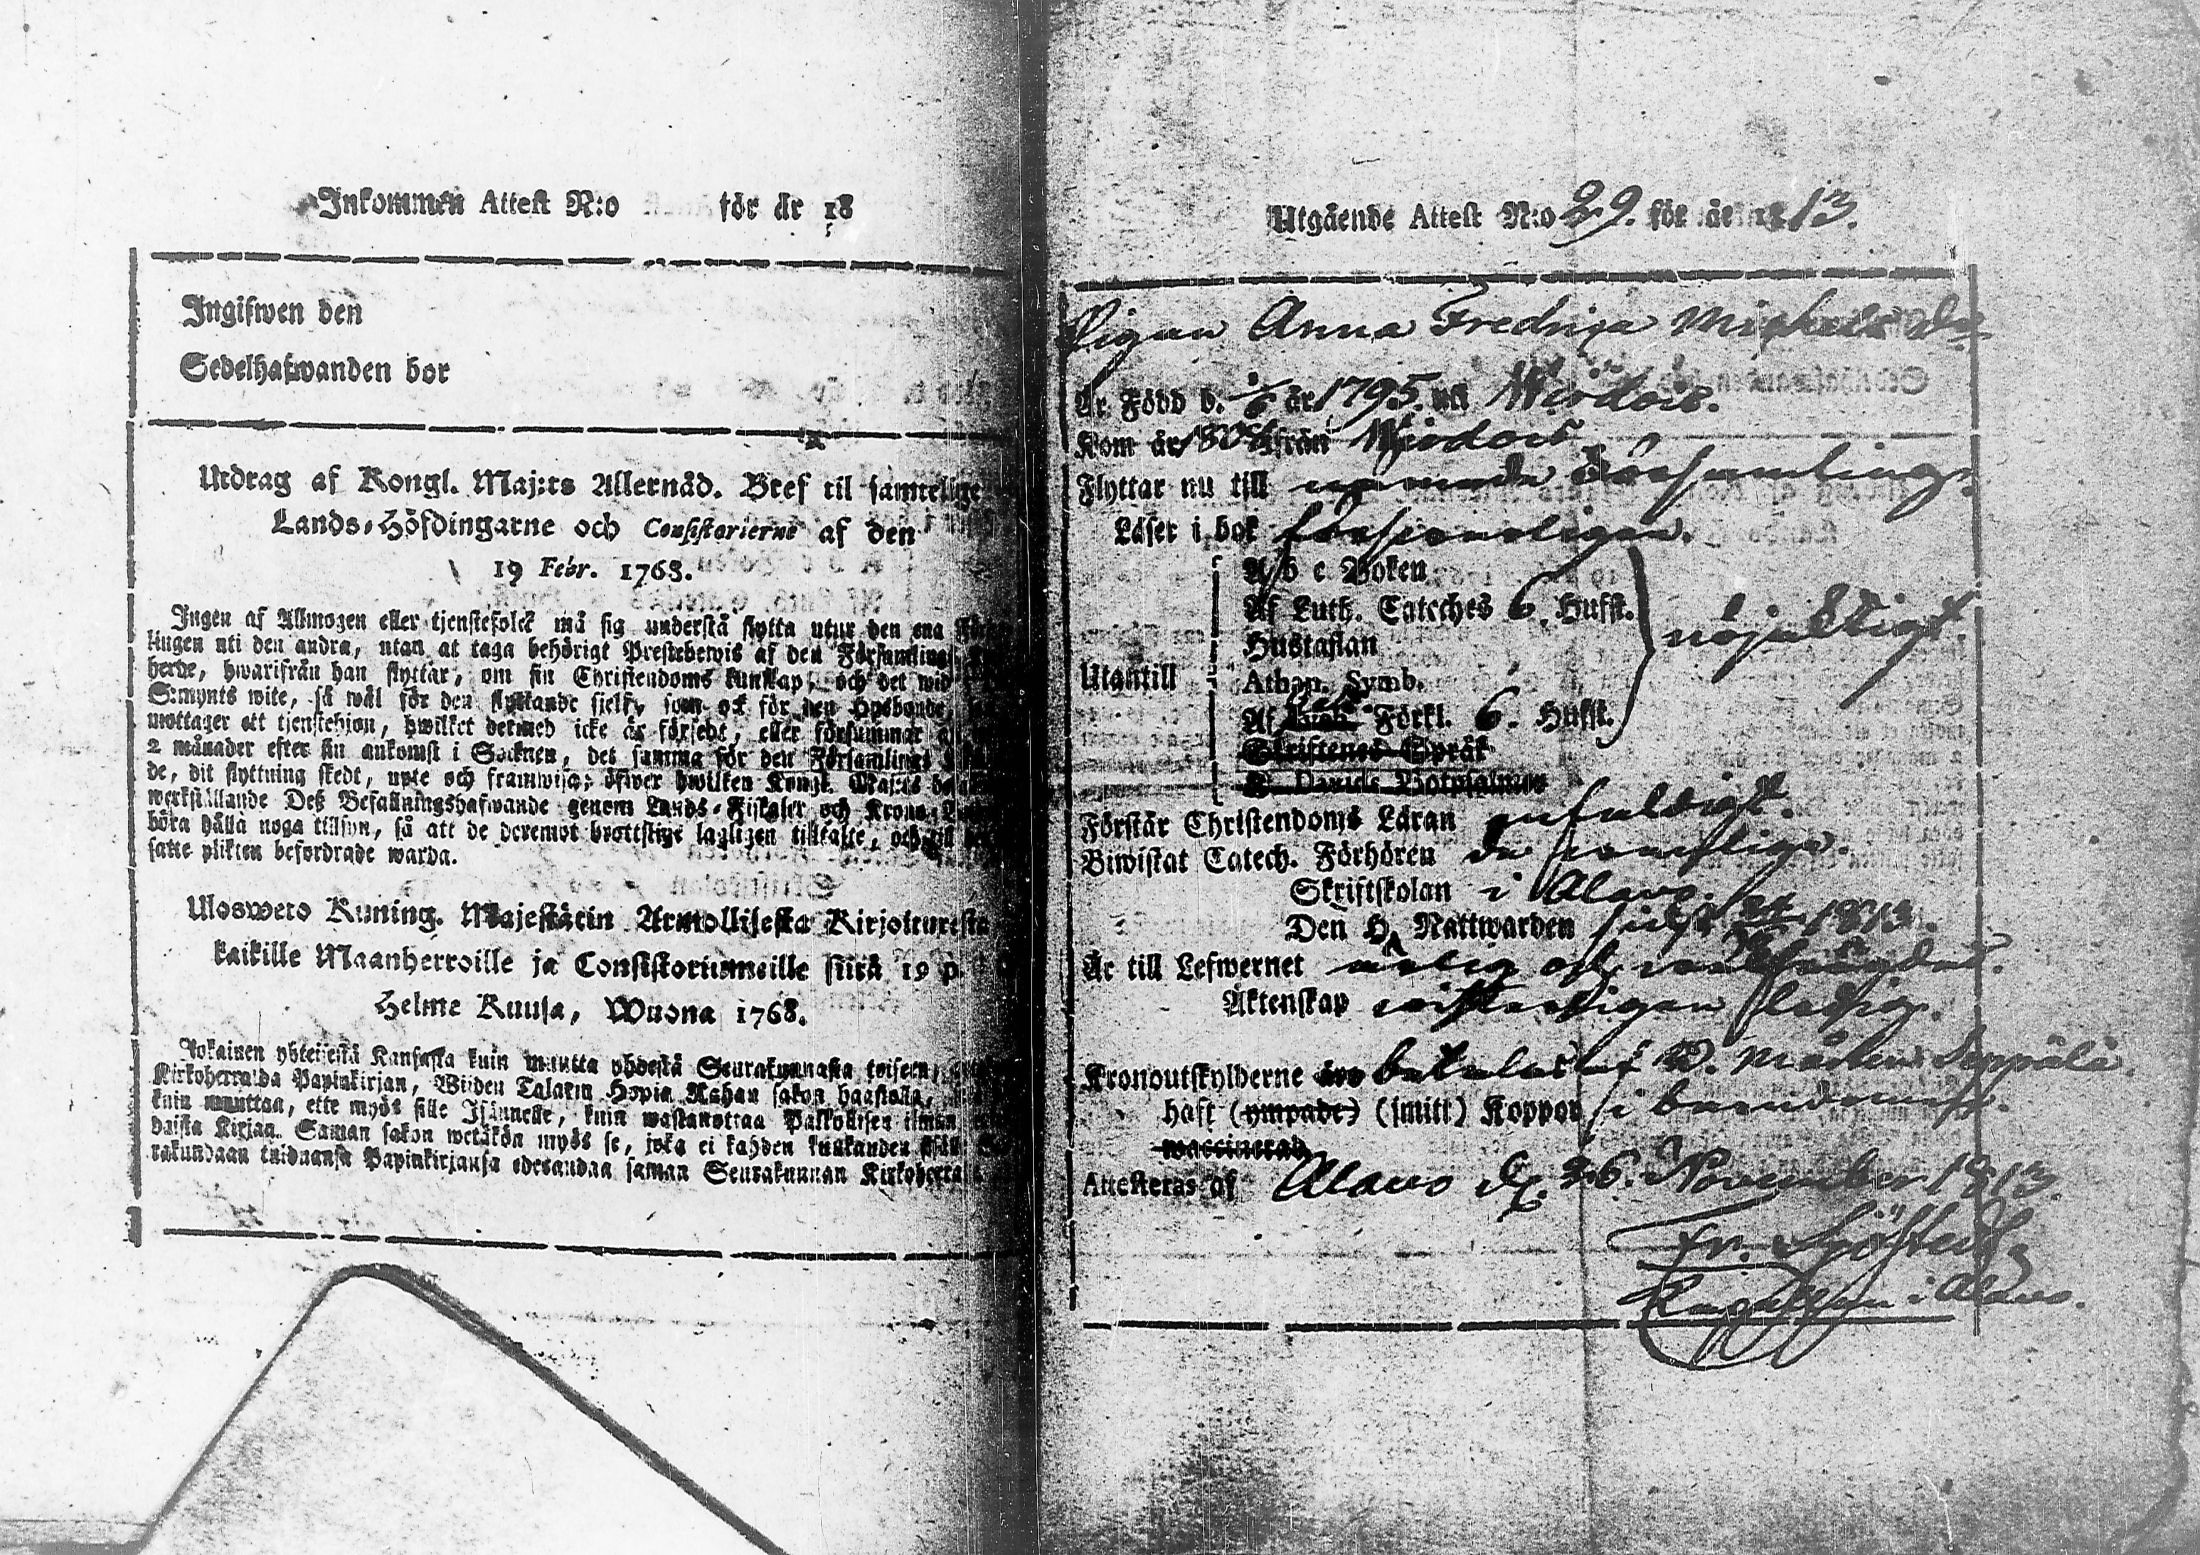 Inkommen Attest N:o för år 18
Ingifwen den
Sedelhafwanden bor
Utdrag af Kongl. Maj:ts Allernåd. Bref til samtelige
Lands-Höfdingarne och Consistorierne af den
19 Febr. 1768.
Ingen af Allmogen eller tjenstefolck må sig understå flytta utur den ena
lingen uti den andra, utan at taga behörigt Prestebewis af den Församling
herde, hwarifrån han flyttar, om sin Christendoms kunskap, och det wid
S:mynts wite, så wäl för den flyttande sielf, som ock för den Husbonde,
mottager ett tjenstehjon, hwilket dermed icke är försedt, eller försummar
2 månader efter sin ankomst i Socknen, det samma för den Församlings
de, dit flyttning skedt, upte och framwisa; öfwer hwilken Kongl. Maj:ts
werkställande Deß Befallningshafwande genom Lands-Fiskaler och Krono-
böra hålla noga tillsyn, så att de deremot brottslige lagligen tilltalte, och till
satte plikten befordrade warda.
Uloswero Kuning. Majestätin Armollisesta Kirjoituresta
kaikille Maanherroille ja Consistoriumeille siitä 19 p.
Helme Kuusa, Wuona 1768.
Jokainen yhteisestä Kansasta kuin muutta yhdestä Seurakunnasta toiseen,
Kirkoherralda Papinkirjan, Wiiden Talarin Hopia Rahan sakon haastolla,
kuin muuttaa, ette myös sille Isännelle, kuin wastanottaa Palkollisen ilman
daista Kirjan. Saman sakon wetäkön myös se, joka ei kahden kuukauden
rakundaan tulduansa Papinkirjansa edesandaa saman Seurakunnan Kirkoherra
Utgående Attest N:o 29. för år 1813.
Pigan Anna Fredrica Michels dr
Är Född d. 1/6 år 1795. uti Wirdois.
Kom år 180 ifrån Wirdois
Flyttar nu till Församling.
Läser i bok försvarligen.
Utantill
A b c Boken
Af Luth. Cateches 6. Hufst.
Hustaflan
Athan. Symb.
Af Förkl. 6. Hufst.
nöjaktigt.
Skriftenes Språk
K. Davids Botpsalmer
Förstår Christendoms Läran enfaldigt.
Biwistat Catech. Förhören
Skriftskolan i Alavo.
Den H. Nattwarden sist 1813.
Är till Lefwernet ärlig och
Äktenskap ledig.
Kronoutskylderne äro betalas af Seppälä.
haft (ympade) (smitt) Koppor i barndomen.
waccinerad
Attesteras af Alavo d. 26. November 1813.
Fr. Sjöstedt
i Alavo.